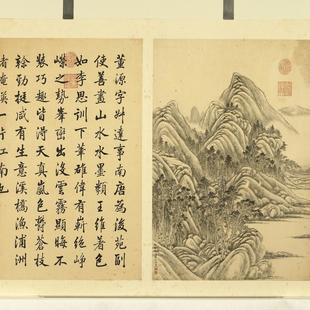 董源字叔達事南唐為後苑副
使善畫山水水墨類王維著色
如李思訓下筆雄偉有嶄絕崢
嶸之勢峯巒出沒雲霧顯晦不
裝巧趣皆淂天真嵐色鬱蒼枝
榦勁挺咸有生意溪橋漁浦洲
渚掩暎一片江南也